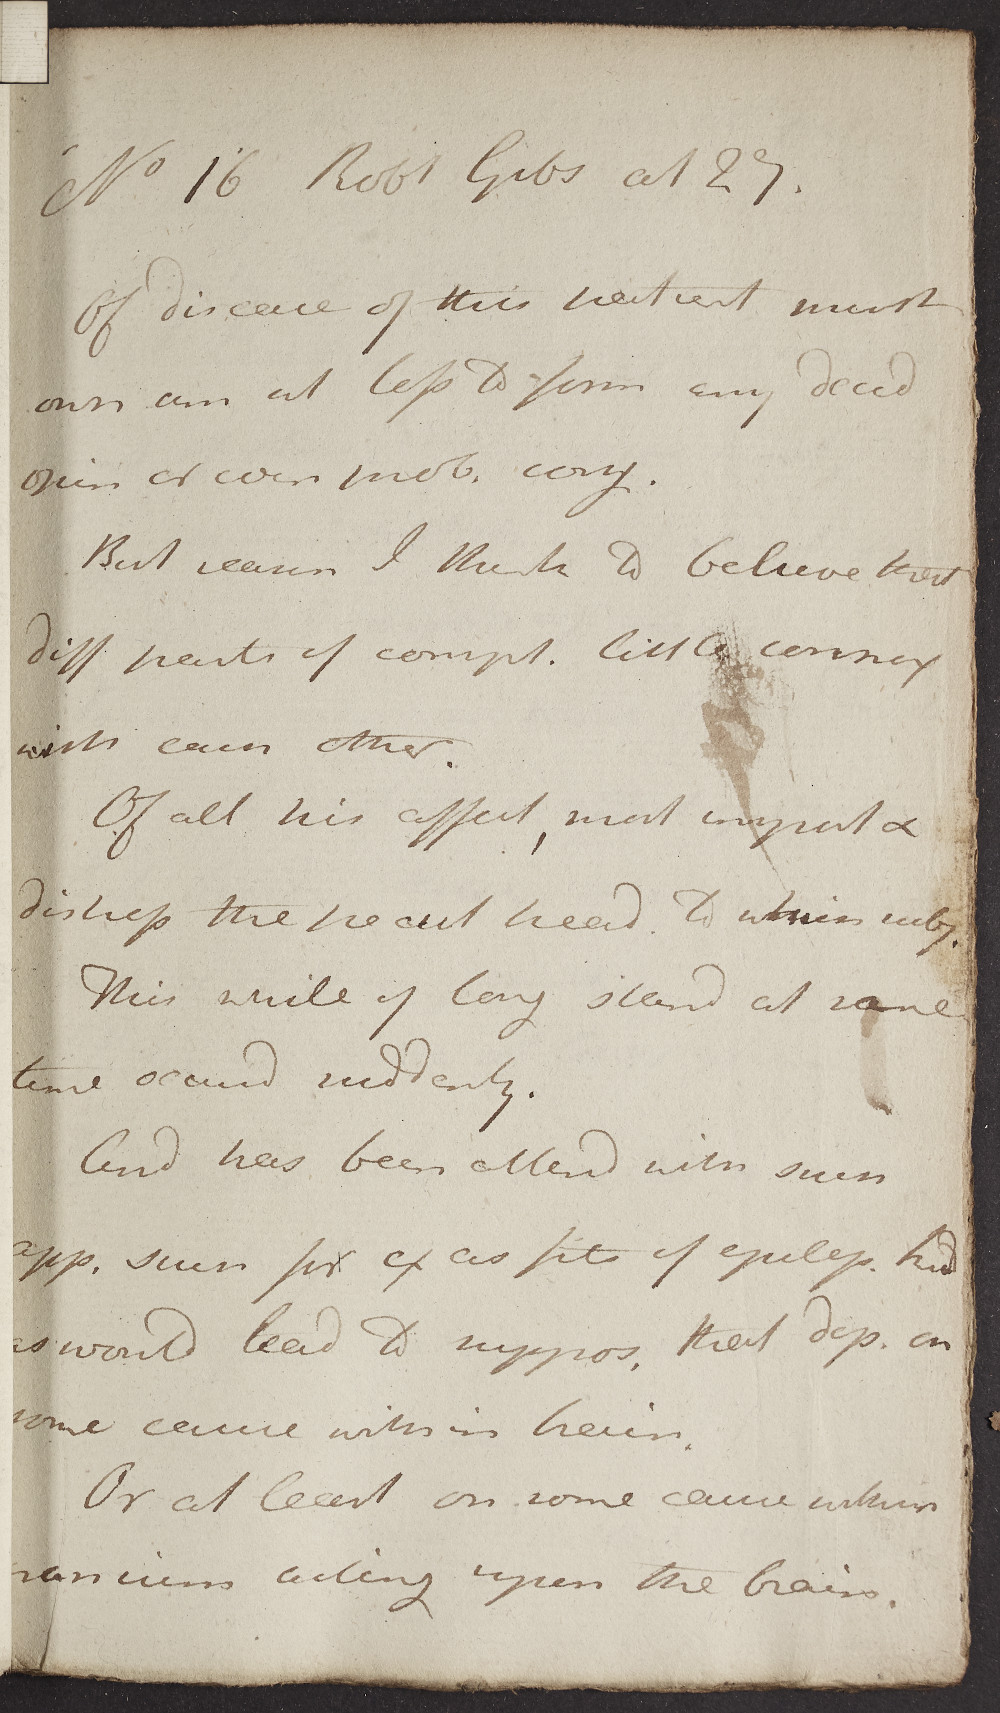 No 16 Robt Gibs æt 27.
Of disease of this patient must
own am at loss to form any decid
opin or even prob. conj.
But reason I think to believe that
diff parts of compt. little connex
with each other.
Of all his affect, most import &
distress the head to which subj.
This while of long stand at same
time occurrd suddenly.
And has been attend with such
app. such for ex as fits of epilep. kind
as would lead to suppos, that dep. on
some cause within brain.
Or at least on some cause within
cranium acting upon the brain.